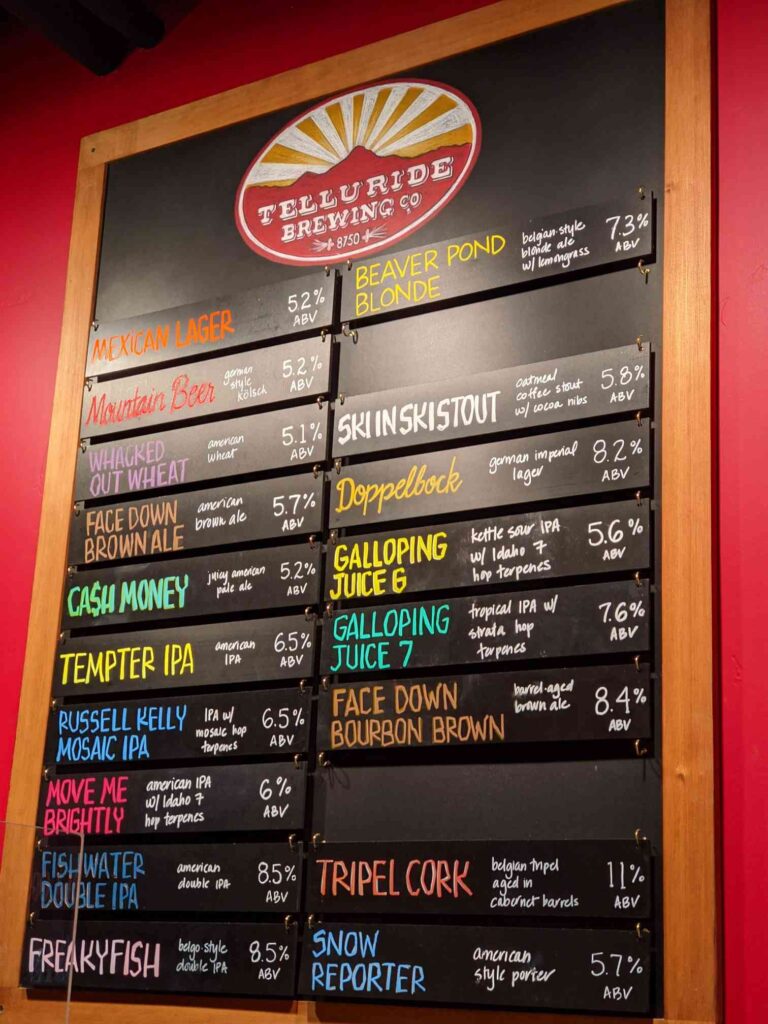 TELLURIDE
BREWING CO
8750
MEXICAN LAGER
5.2%
ABV
Mountain Beer
german
style
kölsch
5.2%
ABV
WHACKED
OUT WHEAT
american
wheat
5.1%
ABV
FACE DOWN
BROWN ALE
american
brown ale
5.7%
ABV
CA$H MONEY
juicy american
pale ale
5.2%
ABV
TEMPTER IPA
american
IPA
6.5%
ABV
RUSSELL KELLY
MOSAIC IPA
IPA w/
mosaic hop
terpenes
6.5%
ABV
MOVE ME
BRIGHTLY
american IPA
w/ Idaho 7
hop terpenes
6%
ABV
FISHWATER
DOUBLE IPA
american
double IPA
8.5%
ABV
FREAKYFISH
belgo-style
double IPA
8.5%
ABV
BEAVER POND
BLONDE
belgian-style
blonde ale
w/ lemongrass
7.3%
ABV
SKI IN SKI STOUT
oatmeal
coffee stout
w/ cocoa nibs
5.8%
ABV
Doppelbock
german imperial
lager
8.2%
ABV
GALLOPING
JUICE 6
kettle sour IPA
w/ Idaho 7
hop terpenes
5.6%
ABV
GALLOPING
JUICE 7
tropical IPA w/
strata hop
terpenes
7.6%
ABV
FACE DOWN
BOURBON BROWN
barrel-aged
brown ale
8.4%
ABV
TRIPEL CORK
belgian tripel
aged in
cabernet barrels
11%
ABV
SNOW
REPORTER
american
style porter
5.7%
ABV